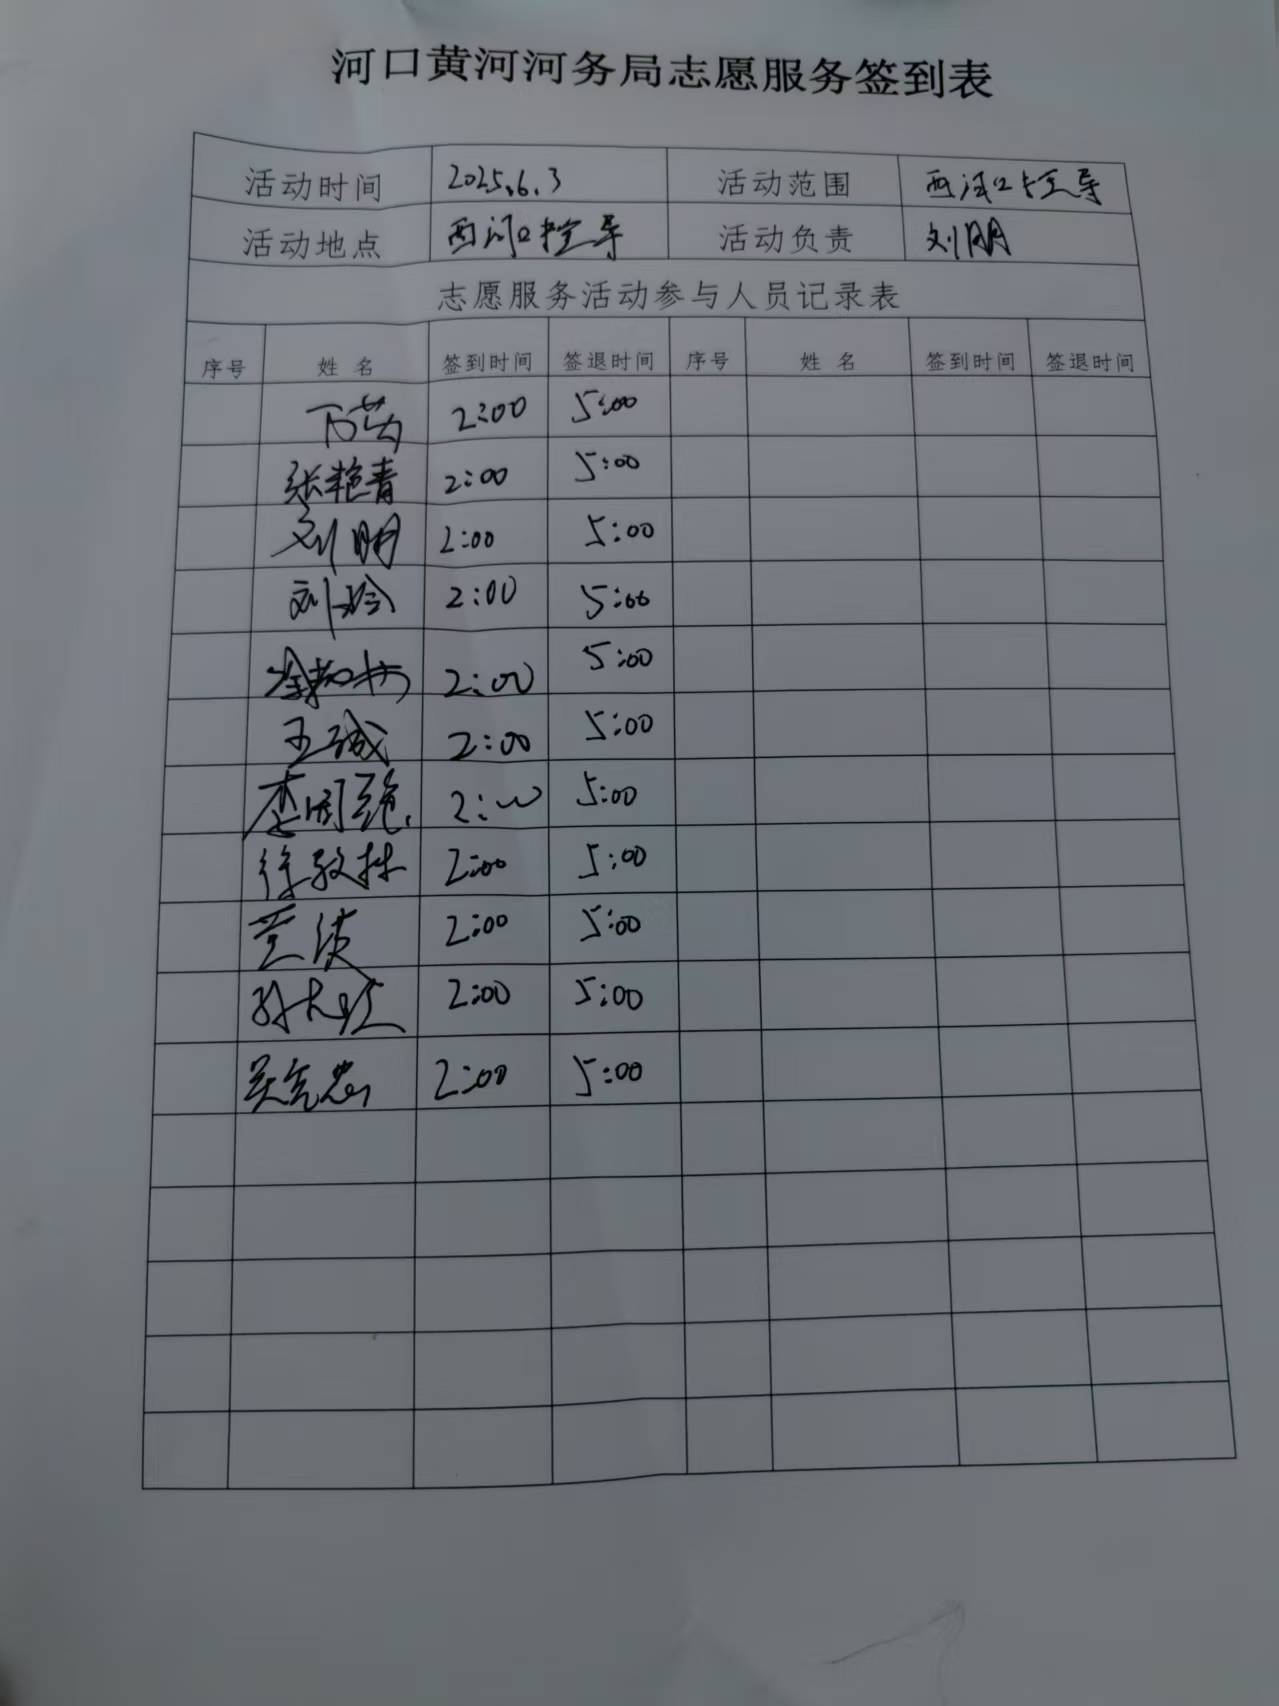 河口黄河河务局志愿服务签到表
活动时间 2025.6.3 活动范围 西河口控导
活动地点 西河口控导 活动负责 刘明
志愿服务活动参与人员记录表
序号 姓名 签到时间 签退时间 序号 姓名 签到时间 签退时间
2:00 5:00
张艳青 2:00 5:00
刘明 2:00 5:00
刘玲 2:00 5:00
2:00 5:00
王诚 2:00 5:00
李国强 2:00 5:00
徐敬林 2:00 5:00
2:00 5:00
2:00 5:00
2:00 5:00